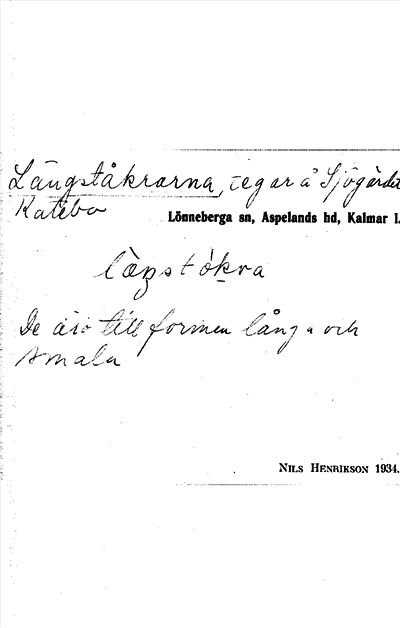 Långståkrarna, tegar å Sjögärdet
Katebo
Lönneberga sn, Aspelands hd, Kalmar l.
làŋstókra
De äro till formen långa och
smala
NILS HENRIKSON 1934.